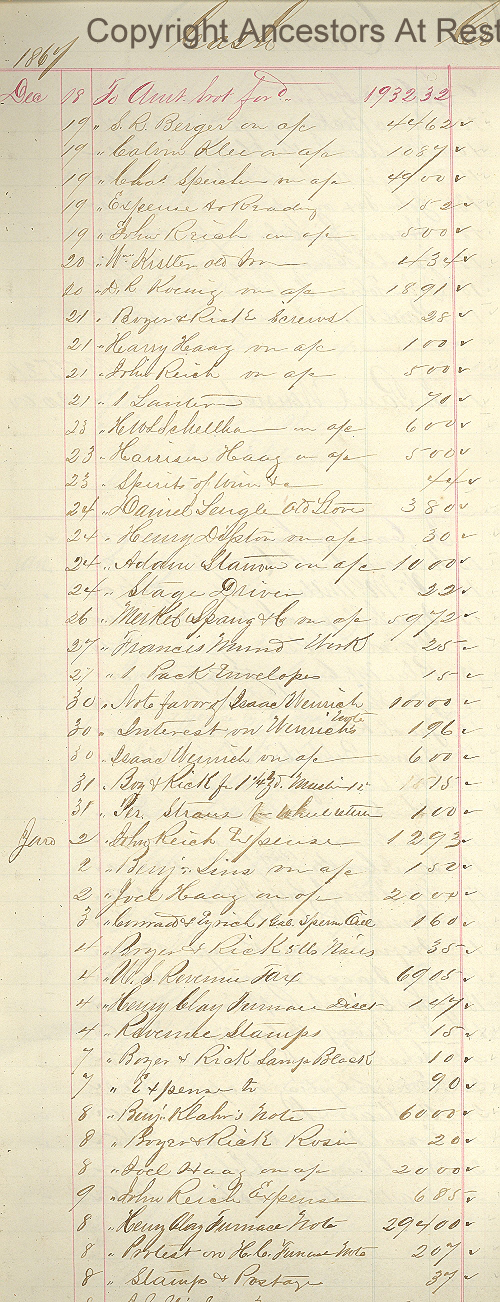 Copyright Ancestors At Rest
1867 Cash
Dec 18 To Amt brot ford 1932 32
19 " S. R. Berger on a/c 44 62
19 " Calvin Klee on a/c 10 87
19 " Chas Speicher on a/c 49 00
19 " Expense to Reading 1 52
19 " John Reich on a/c 5 00
20 " Wm Kistler old Iron 4 34
20 " D. R. Koenig on a/c 18 91
21 " Boyer & Rick Screws 28
21 " Harry Haag on a/c 1 00
21 " John Reich on a/c 5 00
21 " 1 Lantern 70
23 " H W Schellham on a/c 6 00
23 " Harrison Haag on a/c 5 00
23 " Spirits of Wine &c 44
24 " Daniel Lengle Old Stove 3 80
24 " Henry on a/c 30
24 " Adam Stamm on a/c 10 00
24 " Stage Driver 22
26 " Merkel Spang & Co on a/c 59 72
27 " Francis Mund Work 25
27 " 1 Pack Envelopes 15
30 " Note favor of Isaac Wenrich 100 00
30 " Interest on Wenrichs Note 1 96
30 " Isaac Wenrich on a/c 6 00
31 " Boy & Rick f 1 yd. Muslin 15
31 " Straus 1 00
Jan 2 " John Reich Expense 12 93
2 " Benj. on a/c 1 50
2 " Joel Haag on a/c 20 00
3 " Conrad & 1 Gal. Sperm Oil 1 60
4 " Boyer & Rick 5 lb Nails 35
4 " U. S. Revenue Tax 69 05
4 " Henry Clay Furnace Disct 1 47
4 " Revenue Stamps 15
7 " Boyer & Rick Lamp Black 10
7 " Expense to 90
8 " Benj. Klahr's Note 60 00
8 " Boyer & Rick Rosin 20
8 " Joel Haag on a/c 20 00
9 " John Reich Expense 6 85
8 " Henry Clay Furnace Note 294 00
8 " Protest on H. C. Furnace Note 2 07
8 " Stamp & Postage 37